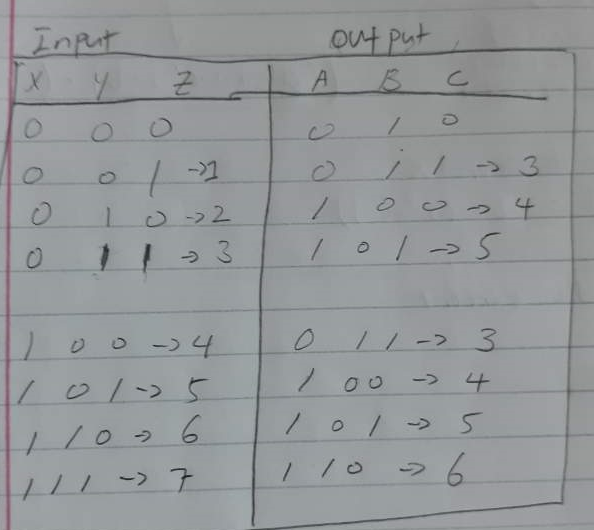 Input Output
X Y Z A B C
0 0 0 0 1 0
0 0 1 →1 0 1 1 → 3
0 1 0 → 2 1 0 0 → 4
0 1 1 → 3 1 0 1 → 5
1 0 0 → 4 0 1 1 → 3
1 0 1 → 5 1 0 0 → 4
1 1 0 → 6 1 0 1 → 5
1 1 1 → 7 1 1 0 → 6